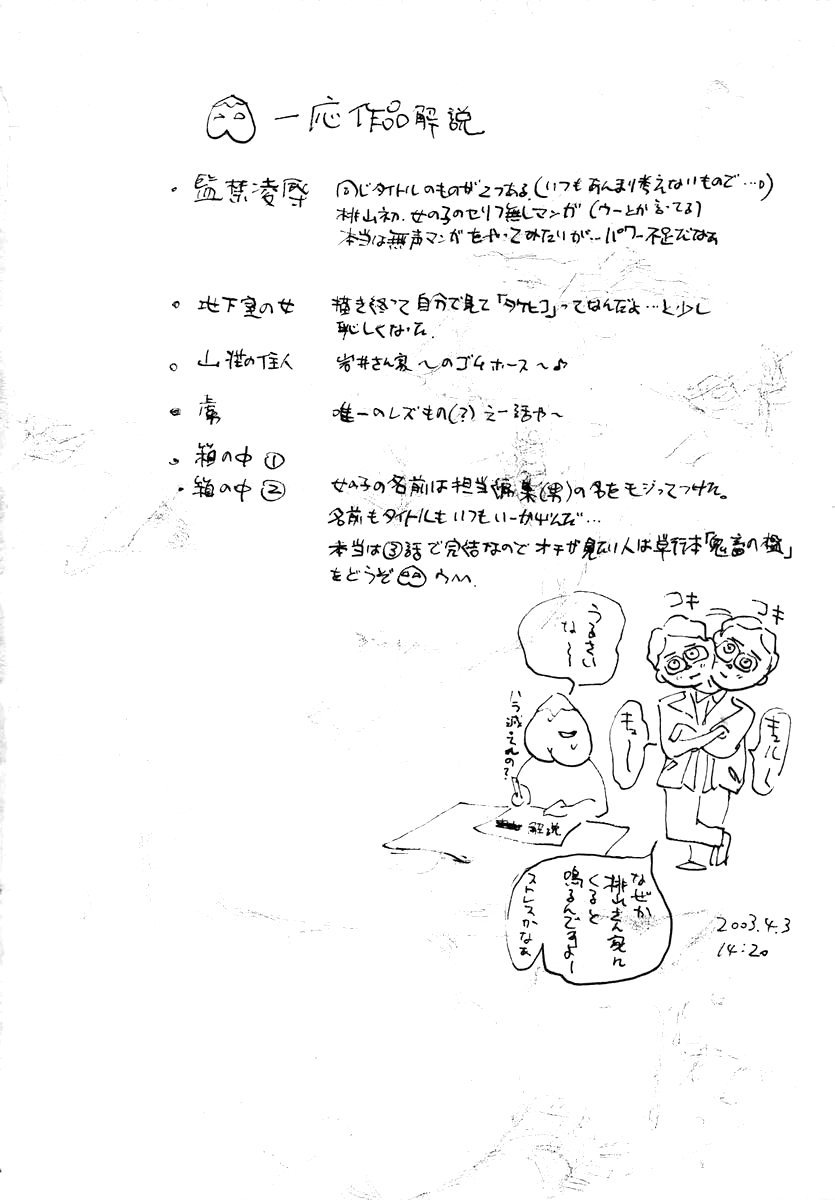 一応作品解説
・監禁凌辱
同じタイトルのものが2つある(いつもあんまり考えないもので…。)
桃山初、女の子のセリフ無しマンガ(ウーとか言ってる)
本当は無声マンガをやってみたいが…パワー不足だなぁ
・地下室の女
描き終って自分で見て「タケヒコ」ってなんだよ…と少し
恥しくなった.
・山荘の住人
岩井さん家〜のゴムホース〜♪
唯一のレズもの(?)えー話や〜
・箱の中①
・箱の中②
女の子の名前は担当編集(男)の名をモジってつけた。
名前もタイトルもいつもいーかげんだ…
本当は③話で完結なのでオチが見たい人は単行本「鬼畜の檻」
をどうぞ
コキ
コキ
うるさい
な〜〜
ハラ減ってんの?
キュー
キュルル
解説
なぜか
桃山さん家に
くると
鳴るんですよー
ストレスかなぁ
2003.4.3
14:20